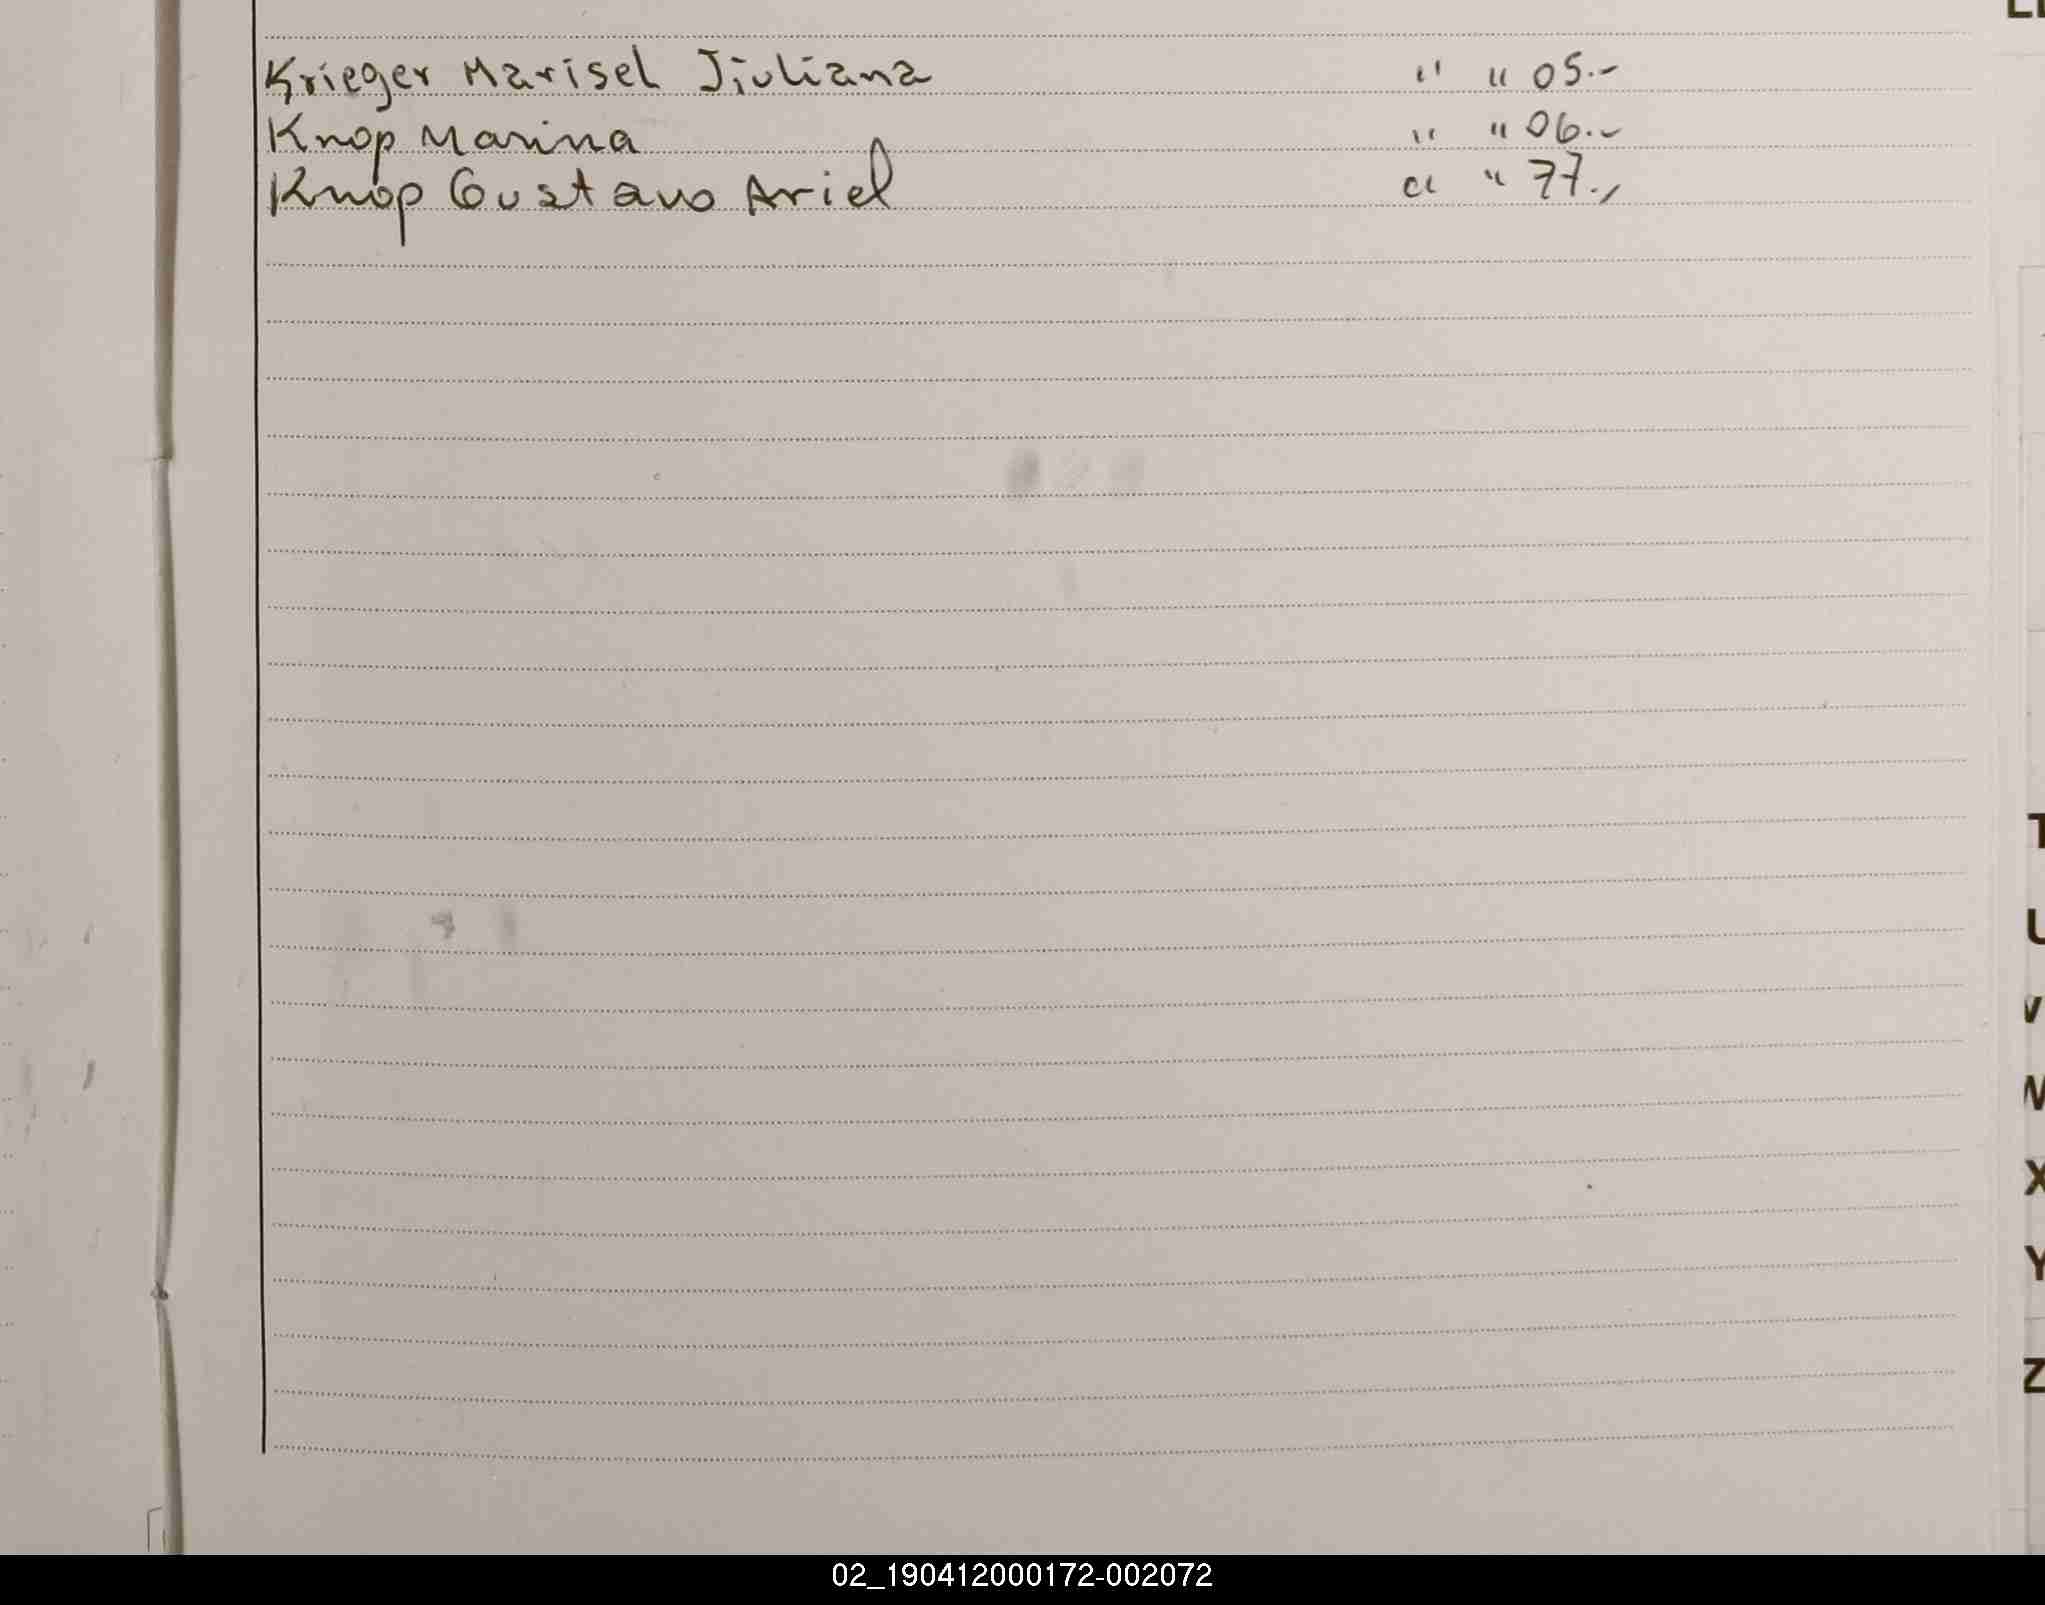 Krieger Marisel Jiuliana " " 05.-
Knop Marina " " 06.-
Knop Gustavo Ariel " " 77.-
T
U
V
W
X
Y
Z
02_190412000172-002072